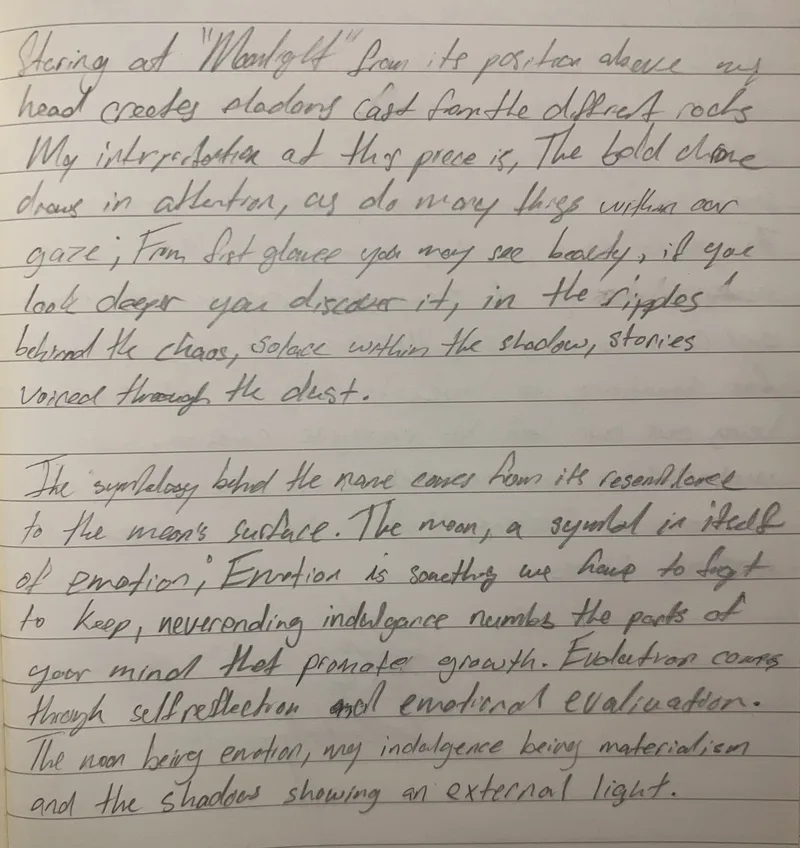 Staring at "Moonlight" from its position above my
head creates shadows cast from the different rocks
My interpretation of this piece is, The bold chrome
draws in attention, as do many things within our
gaze; From first glance you may see beauty, if you
look deeper you discover it, in the ripples
behind the chaos, solace within the shadow, stories
voiced through the dust.
The symbology behind the name comes from its resemblance
to the moon's surface. The moon, a symbol in itself
of emotion; Emotion is something we have to fight
to keep, neverending indulgance numbs the parts of
your mind that promote growth. Evolution comes
through self reflection and emotional evaluation.
The moon being emotion, my indulgence being materialism
and the shadows showing an external light.